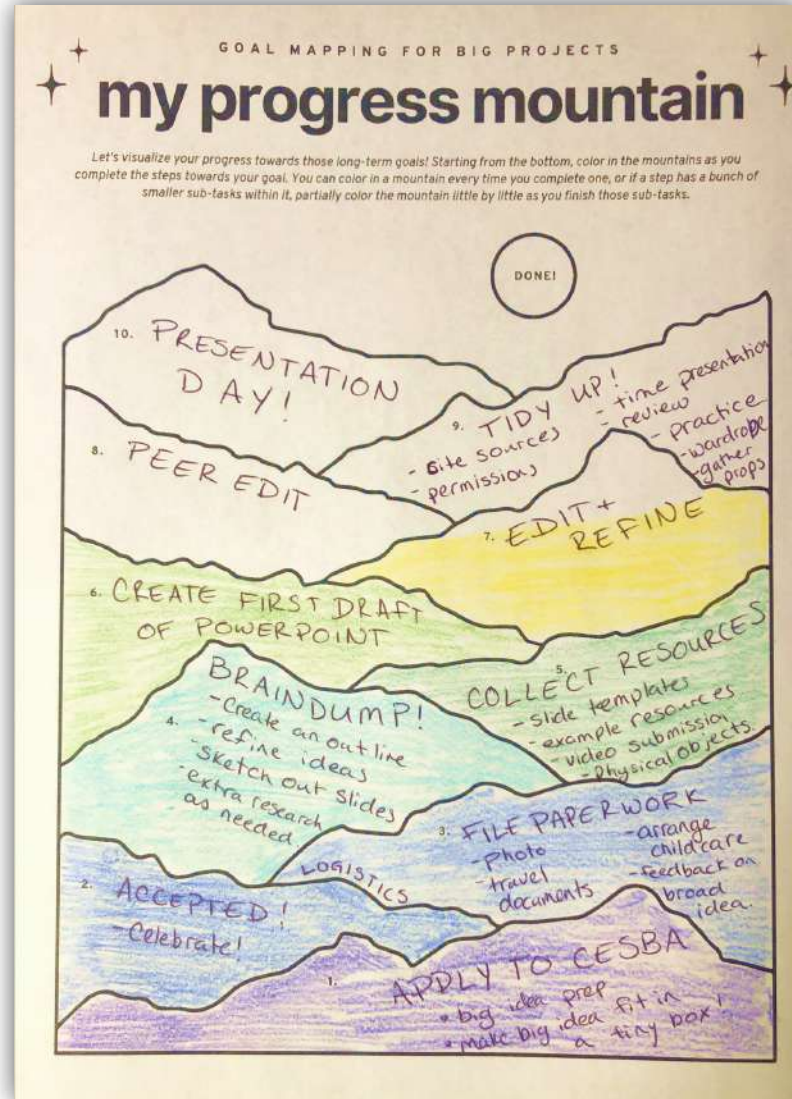 GOAL MAPPING FOR BIG PROJECTS
my progress mountain
Let's visualize your progress towards those long-term goals! Starting from the bottom, color in the mountains as you
complete the steps towards your goal. You can color in a mountain every time you complete one, or if a step has a bunch of
smaller sub-tasks within it, partially color the mountain little by little as you finish those sub-tasks.
DONE!
10. PRESENTATION
DAY!
9. TIDY UP!
- Cite sources
- permissions
- time presentation
- review
- practice
- wardrobe
- gather
props
8. PEER EDIT
7. EDIT +
REFINE
6. CREATE FIRST DRAFT
OF POWERPOINT
5. COLLECT RESOURCES
- slide templates
- example resources
- video submission
- Physical objects.
4. BRAINDUMP!
- Create an outline
- refine ideas
- sketch out slides
- extra research
as needed
3. FILE PAPERWORK
- Photo
- travel
documents
- arrange
childcare
- feedback on
broad
idea.
LOGISTICS
2. ACCEPTED!
- Celebrate!
1. APPLY TO CESBA
• big idea prep
• make big idea fit in
a tiny box!